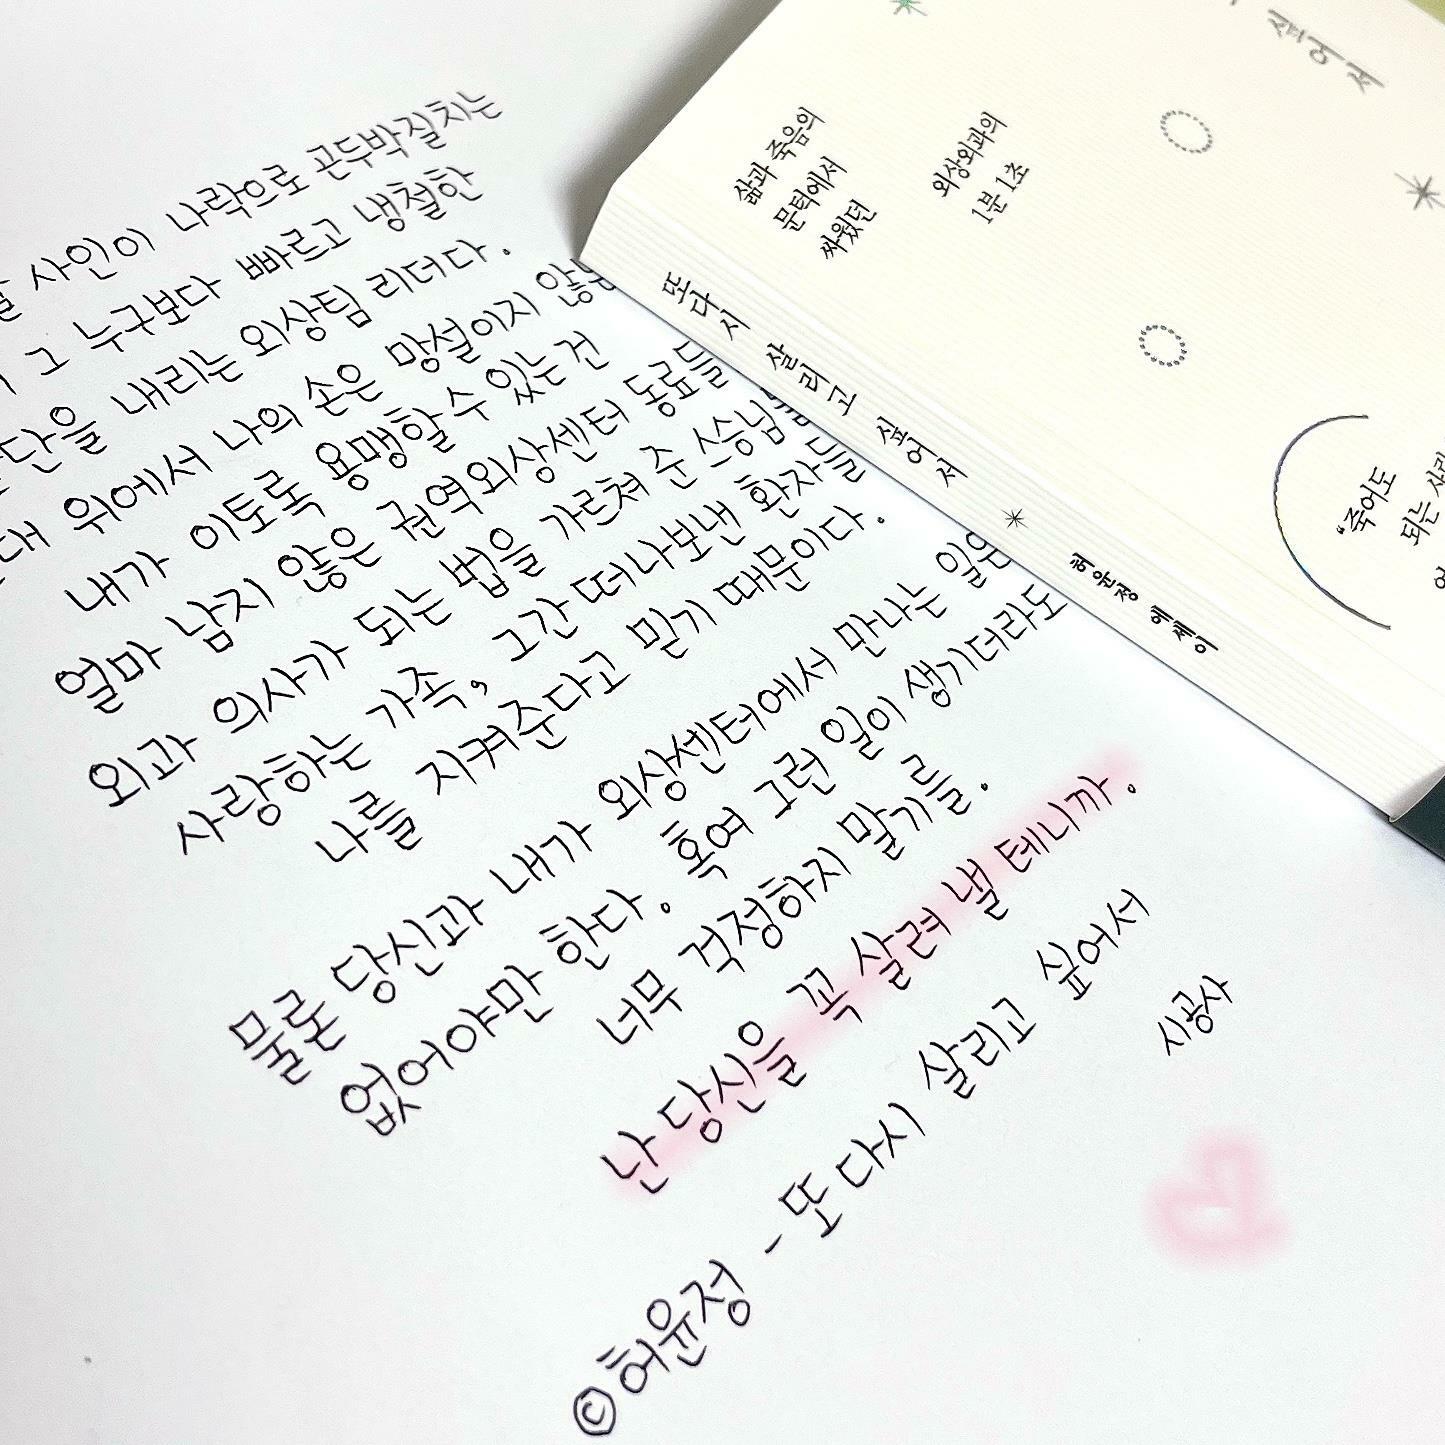 사인이 나락으로 곤두박질치는
그 누구보다 빠르고 냉철한
단을 내리는 외상팀 리더다.
대 위에서 나의 손은 망설이지 않는
내가 이토록 용맹할 수 있는 건
얼마 남지 않은 권역외상센터 동료들
외과 의사가 되는 법을 가르쳐 준 스승님
사랑하는 가족, 그간 떠나보낸 환자들
나를 지켜준다고 믿기 때문이다.
물론 당신과 내가 외상센터에서 만나는 일은
없어야만 한다. 혹여 그런 일이 생기더라도
너무 걱정하지 말기를.
난 당신을 꼭 살려 낼 테니까.
©허윤정 - 또다시 살리고 싶어서
시공사
싶어서
삶과 죽음의
문턱에서
싸웠던
외상외과의
1분 1초
또다시 살리고 싶어서 허윤정 에세이
"죽어도
되는